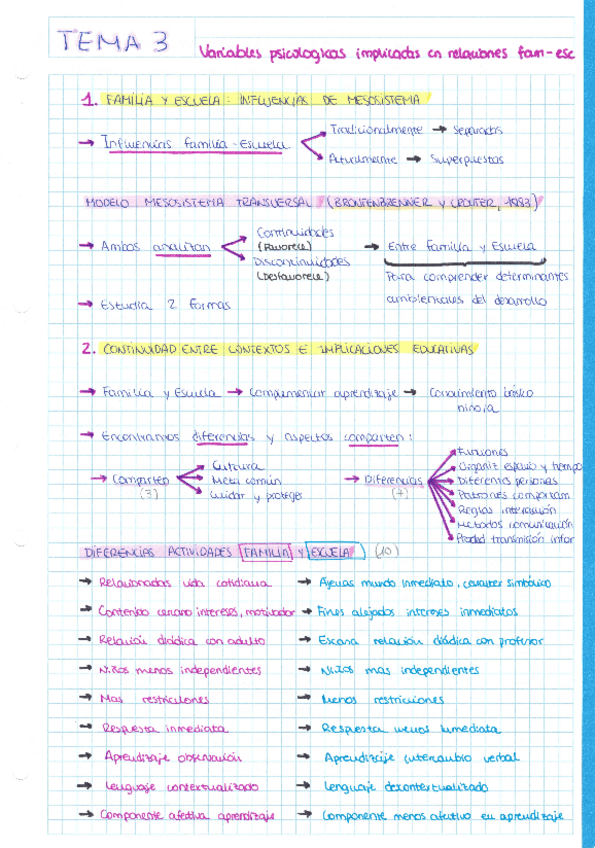 TEMA 3
Variables psicologicas implicadas en relaciones fam-esc
1. FAMILIA Y ESCUELA: INFLUENCIAS DE MESOSISTEMA
→ Influencias familia-Escuela
Tradicionalmente → Separadas
Actualmente → Superpuestas
MODELO MESOSISTEMA TRANSVERSAL (BRONFENBRENNER Y CROUTER, 1983)
→ Ambos analizan
Continuidades
(Favorece)
Discontinuidades
(Desfavorece)
→ Entre Familia y Escuela
Para comprender determinantes
ambientales del desarrollo
→ Estudia 2 formas
2. CONTINUIDAD ENTRE CONTEXTOS E IMPLICACIONES EDUCATIVAS
→ Familia y Escuela → Complementar aprendizaje → Crecimiento
niño/a
→ Encontramos diferencias y aspectos comparten:
→ Comparten
(3)
Cultura
Meta común
Cuidar y proteger
→ Diferencias
(7)
Funciones
Organiz espacio y tiempo
Diferentes personas
Patrones comportam
Reglas interacción
Metodos comunicación
Proced transmisión infor
DIFERENCIAS ACTIVIDADES FAMILIA Y ESCUELA (10)
→ Relacionadas vida cotidiana → Ajenas mundo inmediato, caracter simbólico
→ Contenido cercano intereses, motivador → Fines alejados intereses inmediatos
→ Relación diádica con adulto → Escasa relación diádica con profesor
→ Niños menos independientes → Niños mas independientes
→ Mas restricciones → Menos restricciones
→ Respuesta inmediata → Respuesta menos inmediata
→ Aprendizaje observación → Aprendizaje intercambio verbal
→ Lenguaje contextualizado → Lenguaje descontextualizado
→ Componente afectivo aprendizaje → Componente menos afectivo en aprendizaje